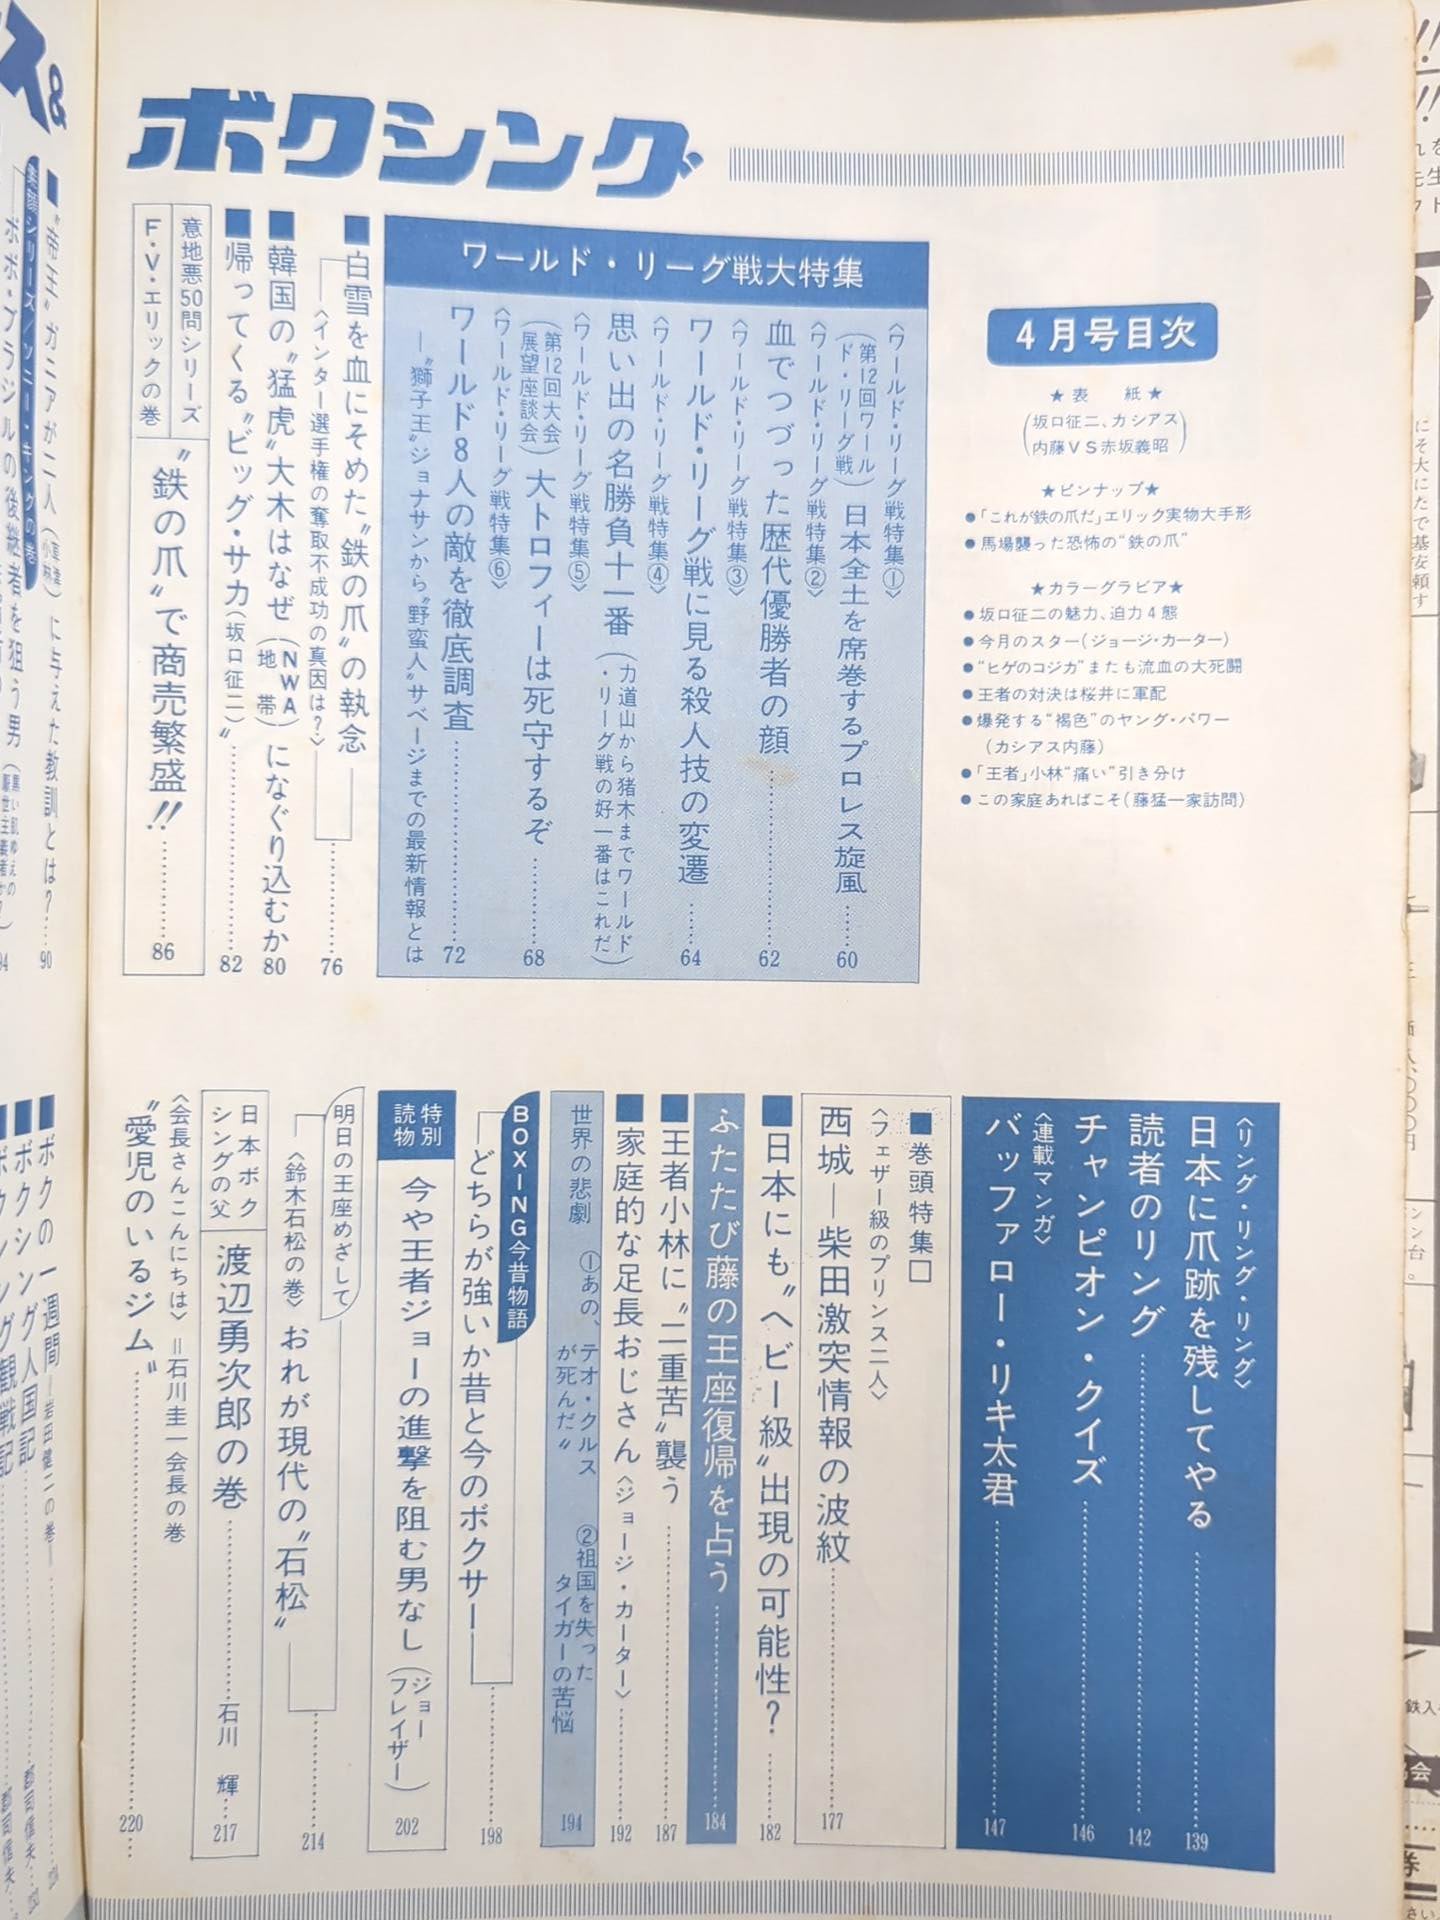 ボクシング
4月号目次
★表　紙★
(坂口征二、カシアス
内藤ＶＳ赤坂義昭)
★ピンナップ★
●「これが鉄の爪だ」エリック実物大手形
●馬場襲った恐怖の“鉄の爪”
★カラーグラビア★
●坂口征二の魅力、迫力4態
●今月のスター(ジョージ・カーター)
●“ヒゲのコジカ”またも流血の大死闘
●王者の対決は桜井に軍配
●爆発する“褐色”のヤング・パワー
(カシアス内藤)
●「王者」小林“痛い”引き分け
●この家庭あればこそ(藤猛一家訪問)
ワールド・リーグ戦大特集
〈ワールド・リーグ戦特集①〉
(第12回ワールド・リーグ戦)日本全土を席巻するプロレス旋風……60
〈ワールド・リーグ戦特集②〉
血でつづった歴代優勝者の顔……62
〈ワールド・リーグ戦特集③〉
ワールド・リーグ戦に見る殺人技の変遷……64
〈ワールド・リーグ戦特集④〉
思い出の名勝負十一番(力道山から猪木までワールド・リーグ戦の好一番はこれだ)
〈ワールド・リーグ戦特集⑤〉
(第12回大会展望座談会)大トロフィーは死守するぞ……68
〈ワールド・リーグ戦特集⑥〉
ワールド8人の敵を徹底調査……72
―“獅子王”ジョナサンから“野蛮人”サベージまでの最新情報とは
■白雪を血にそめた“鉄の爪”の執念……76
〈インター選手権の奪取不成功の真因は?〉
■韓国の“猛虎”大木はなぜ(NWA地帯)になぐり込むか 80
■帰ってくる“ビッグ・サカ(坂口征二)”……82
意地悪50問シリーズ
F・V・エリックの巻
“鉄の爪”で商売繁盛!!……86
〈リング・リング・リング〉
日本に爪跡を残してやる……139
読者のリング……142
チャンピオン・クイズ……146
〈連載マンガ〉
バッファロー・リキ太君……147
■巻頭特集□
〈フェザー級のプリンス二人〉
西城―柴田激突情報の波紋……177
■日本にも“ヘビー級”出現の可能性?……182
ふたたび藤の王座復帰を占う……184
■王者小林に“二重苦”襲う……187
■家庭的な足長おじさん〈ジョージ・カーター〉……192
世界の悲劇　①あの、テオ・クルスが死んだ”　②祖国を失ったタイガーの苦悩 194
BOXING今昔物語
どちらが強いか昔と今のボクサー……198
特別読物
今や王者ジョーの進撃を阻む男なし(ジョーフレイザー) 202
明日の王座めざして
〈鈴木石松の巻〉おれが現代の“石松”……214
日本ボクシングの父
渡辺勇次郎の巻……石川　輝…217
〈会長さんこんにちは〉＝石川圭一会長の巻
“愛児のいるジム”……220
■“帝王”ガニアが二人(小林)に与えた教訓とは?……90
ボボ・ブラジルの後継者を狙う男 94
■ボクの一週間―岩田健二の巻―
■ボクシング人国記……郡司信夫
■ボクシング観戦記……郡司信夫